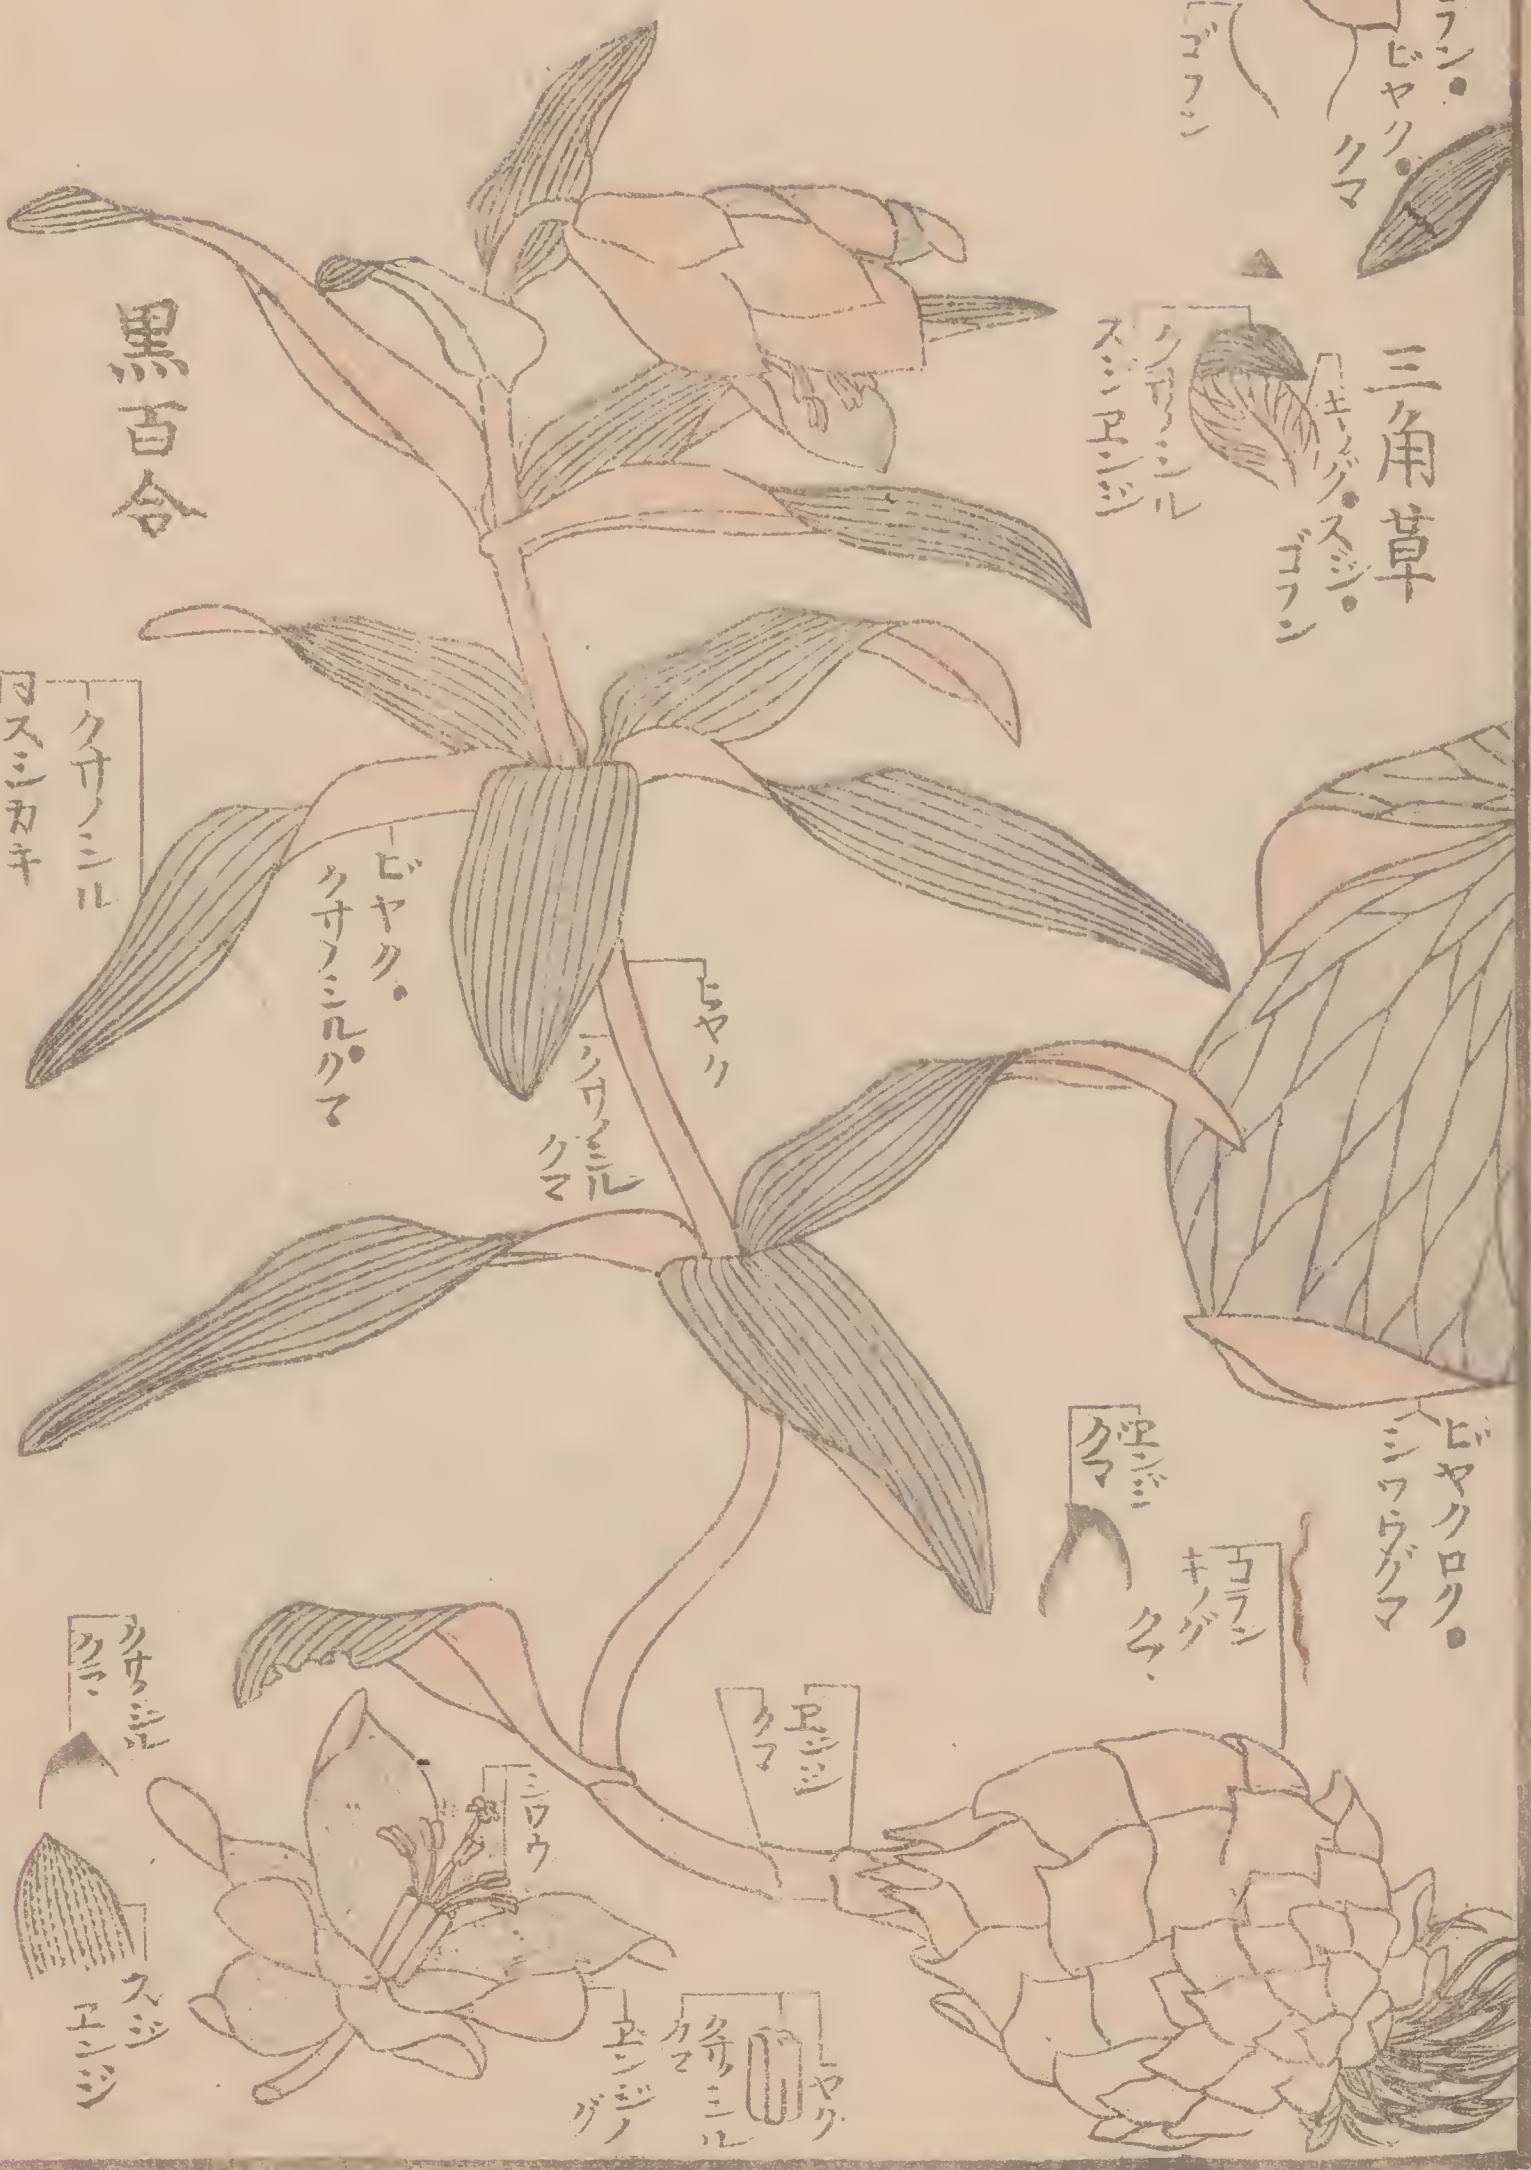 フン。
ビヤク。
クマ
ゴフン
三角草
キノグ。スジ。
ゴフン
クサノシル
スジヱンジ
黒百合
クサノシル
同スミカキ
ビヤク。
クサノシル。クマ
ビヤク
クサノシル
クマ
ビヤクロク。
シワウグマ
ヱンジ
クマ
ゴフン
キノグ
クマ
ヱンジ
クマ
シワウ
クサノシル
クマ
スジ
ヱンジ
ヱンジノ
グ
ビヤク
クサノシル
クマ